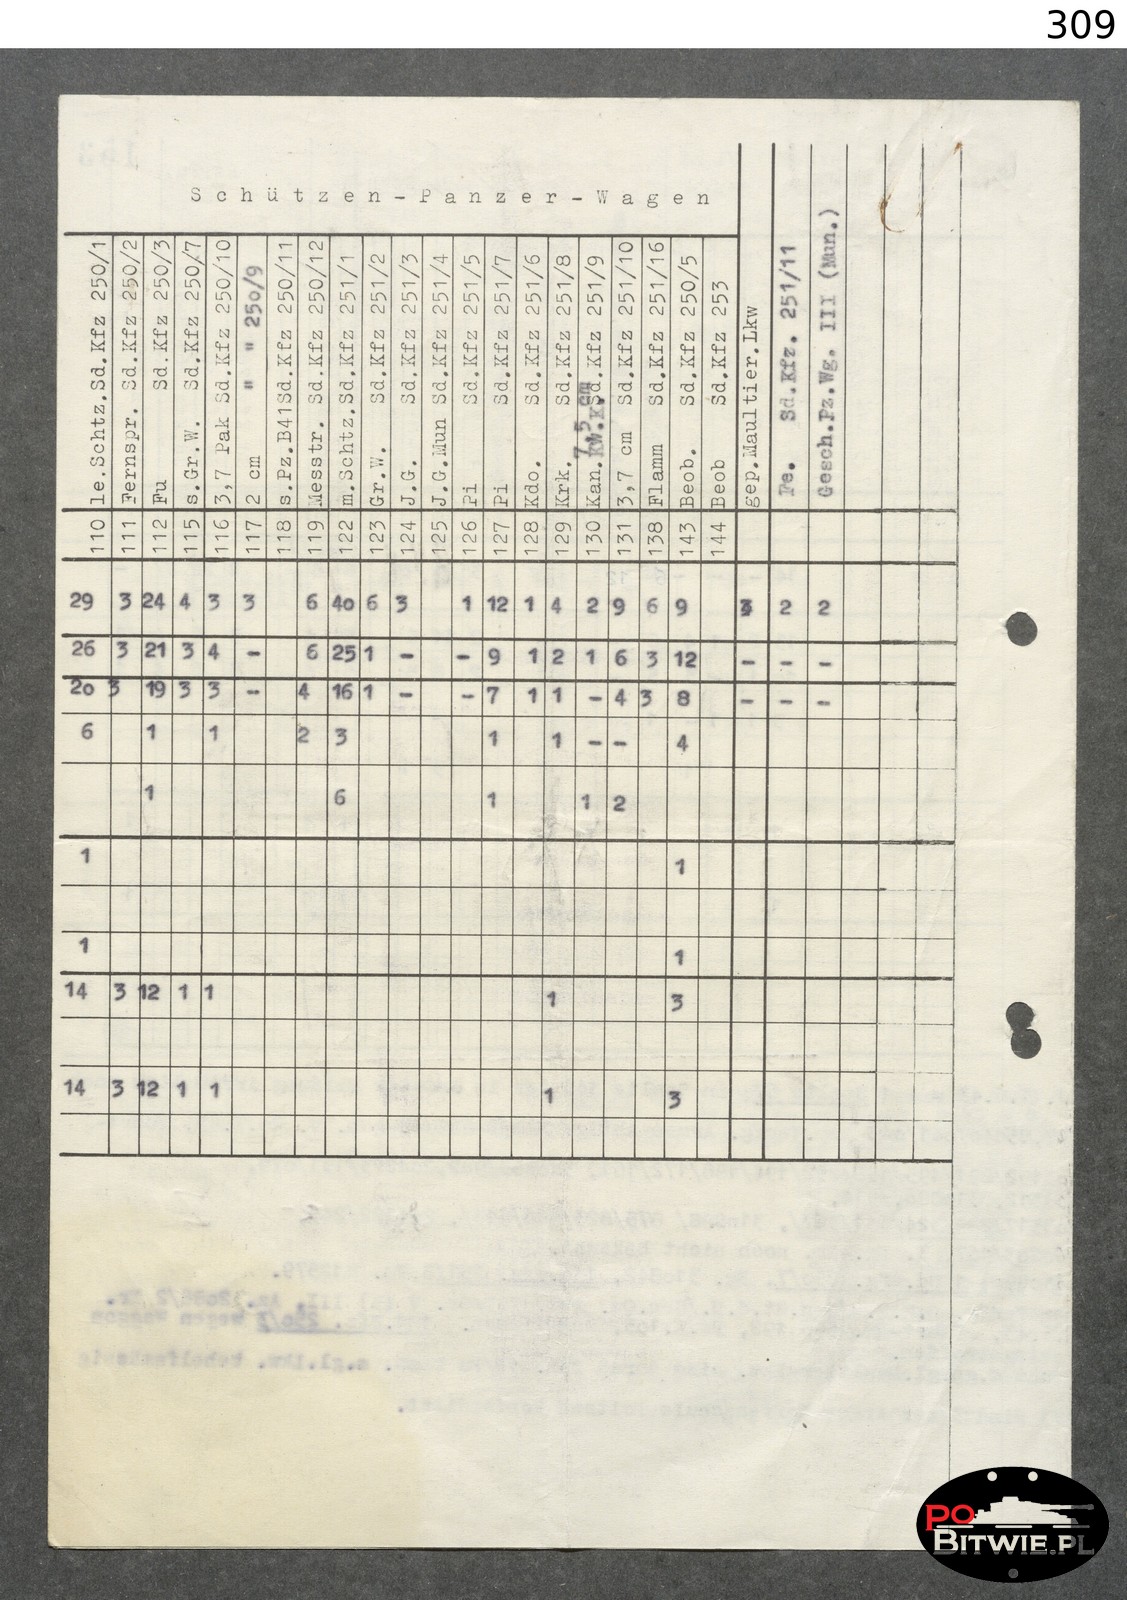 309
Schützen-Panzer-Wagen
110 le.Schtz.Sd.Kfz 250/1
111 Fernspr. Sd.Kfz 250/2
112 Fu Sd.Kfz 250/3
115 s.Gr.W. Sd.Kfz 250/7
116 3,7 Pak Sd.Kfz 250/10
117 2 cm " " 250/9
118 s.Pz.B41Sd.Kfz 250/11
119 Messtr. Sd.Kfz 250/12
122 m.Schtz.Sd.Kfz 251/1
123 Gr.W. Sd.Kfz 251/2
124 J.G. Sd.Kfz 251/3
125 J.G.Mun Sd.Kfz 251/4
126 Pi Sd.Kfz 251/5
127 Pi Sd.Kfz 251/7
128 Kdo. Sd.Kfz 251/6
129 Krk. Sd.Kfz 251/8
130 Kan. 7,5 cm Kw.K. Sd.Kfz 251/9
131 3,7 cm Sd.Kfz 251/10
138 Flamm Sd.Kfz 251/16
143 Beob. Sd.Kfz 250/5
144 Beob Sd.Kfz 253
gep.Maultier.Lkw
Fe. Sd.Kfz. 251/11
Gesch.Pz.Wg. III (Mun.)
29 3 24 4 3 3 6 40 6 3 1 12 1 4 2 9 6 9 3 2 2
26 3 21 3 4 - 6 25 1 - - 9 1 2 1 6 3 12 - - -
20 3 19 3 3 - 4 16 1 - - 7 1 1 - 4 3 8 - - -
6 1 1 2 3 1 1 - - 4
1 6 1 1 2
1 1
1 1
14 3 12 1 1 1 3
14 3 12 1 1 1 3
PO
BITWIE.PL